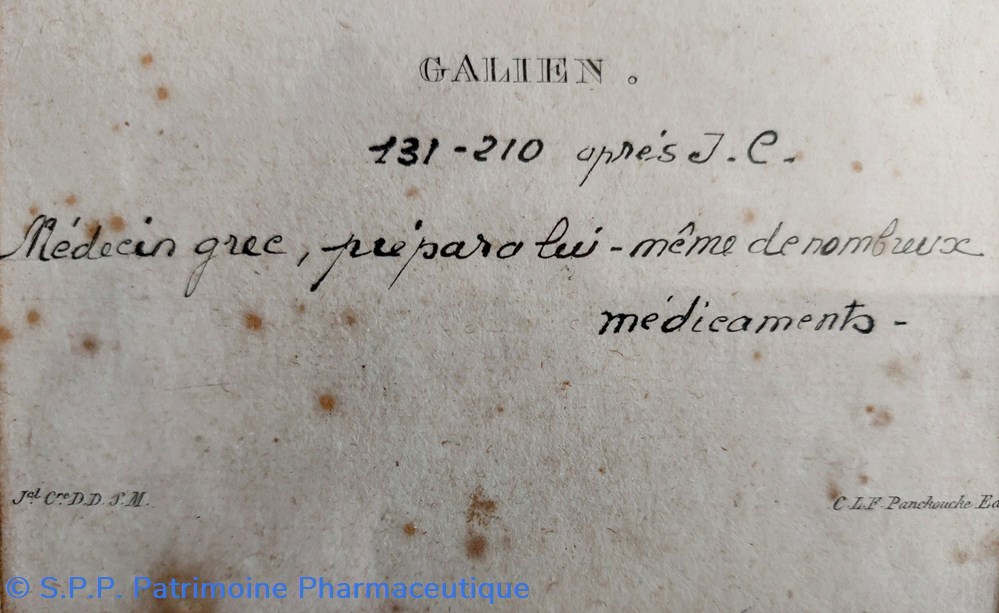 GALIEN.
131-210 après J.C.
Médecin grec, prépara lui-même de nombreux
médicaments-
Jal. Cre D.D. S.M.
C.L.F. Panckoucke Ed
© S.P.P. Patrimoine Pharmaceutique